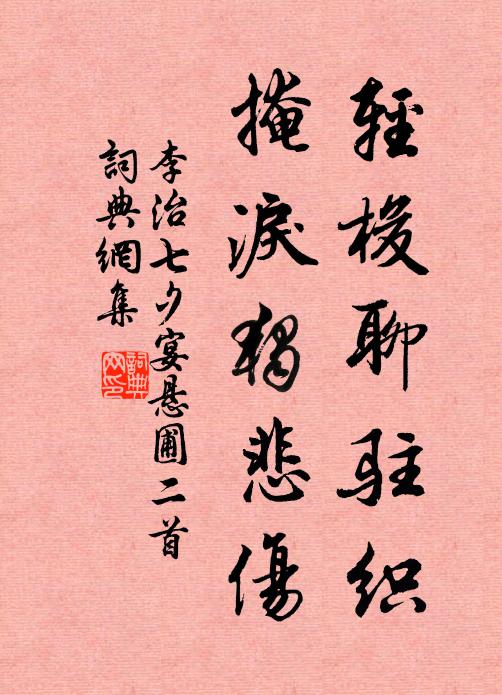 輕梭聊駐織
掩淚獨悲傷
李治七夕宴悬圃二首
詞典網集
詞典網印